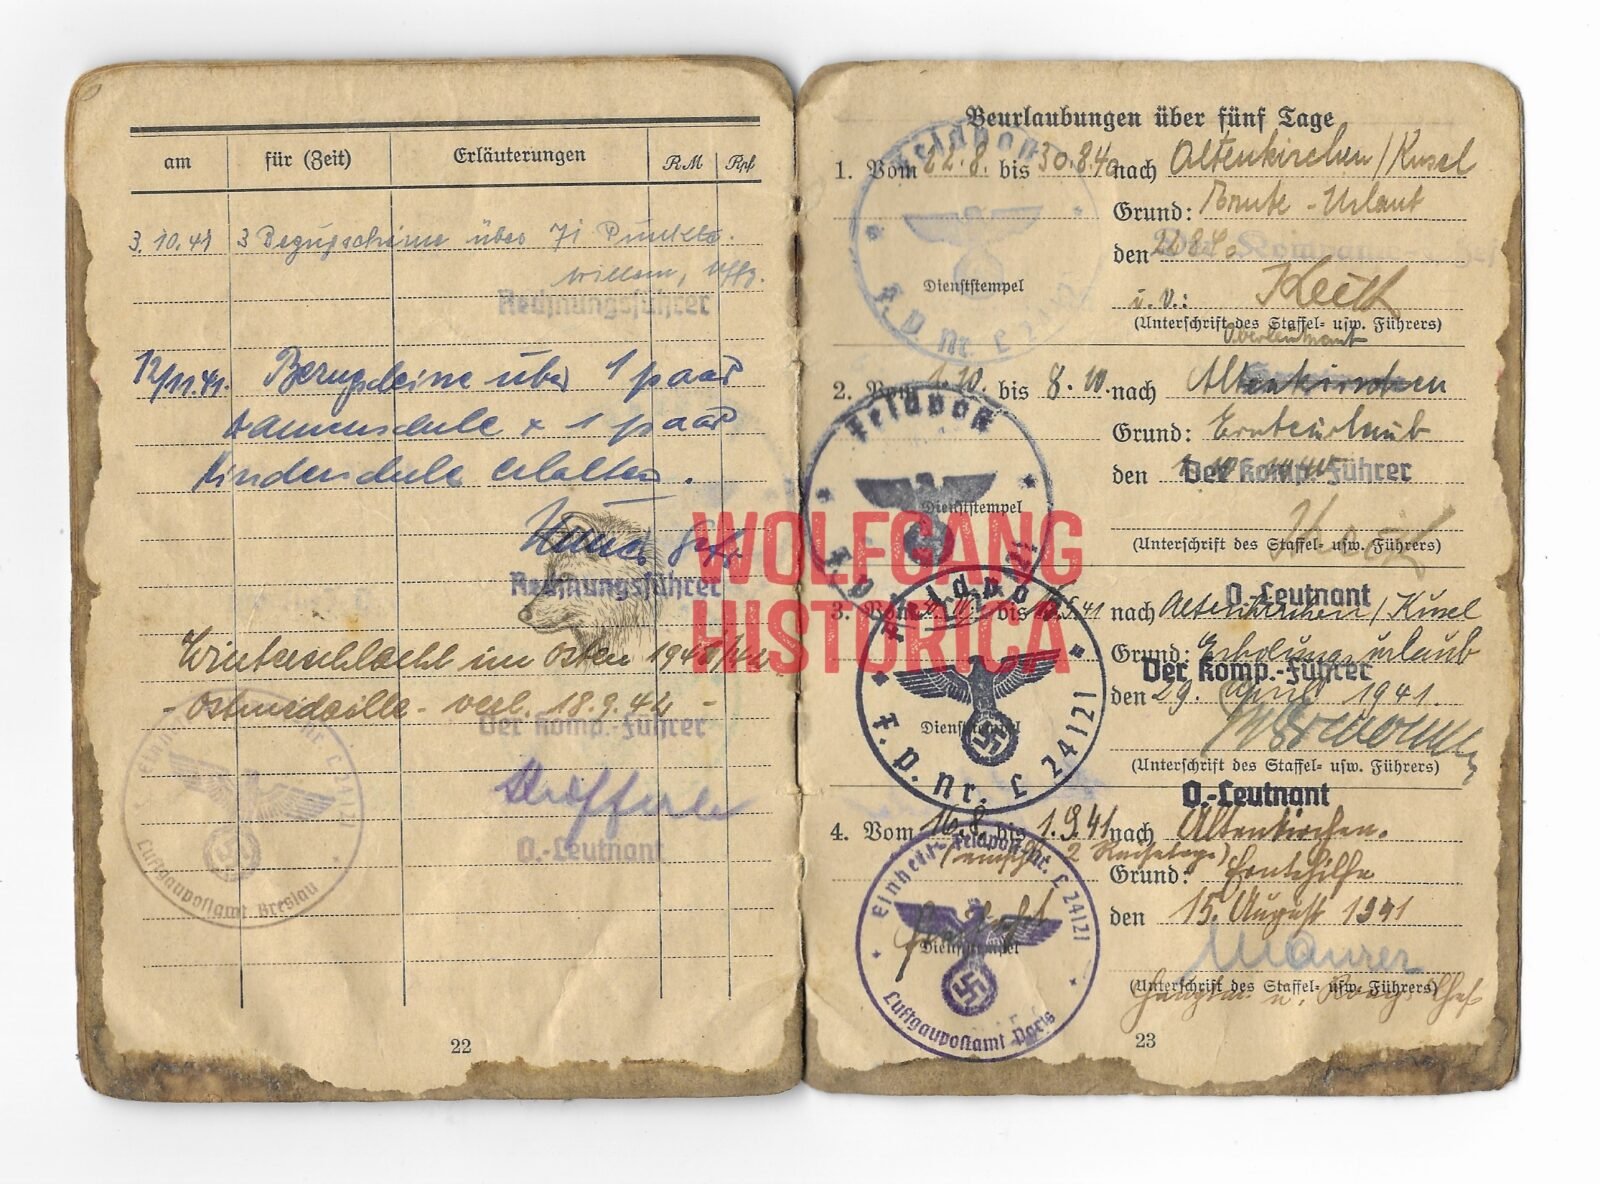 am für (Zeit) Erläuterungen RM Rpf
3.10.41 3 Bezugscheine über 71 Punkte.
Willem, Uffz.
Rechnungsführer
12/11.41. Bezugscheine über 1 paar
damenschule + 1 paar
Kinderschule erhalten.
Gefr
Rechnungsführer
Winterschlacht im Osten 1941/42
- Ostmedaille - verl. 18.9.42 -
Der Komp.-Führer
O.-Leutnant
Einheit Nr. L 24121
Luftgaupostamt Breslau
22
Beurlaubungen über fünf Tage
1. Vom 22.8. bis 30.8.40 nach Altenkirchen/Kusel
Grund: Ernte-Urlaub
den 22.8.40 Der Kompanie
Dienststempel
i. V.:
(Unterschrift des Staffel- usw. Führers)
Oberleutnant
Feldpost
F. P. Nr. L 24121
2. Vom 1.10. bis 8.10. nach Altenkirchen
Grund: Ernteurlaub
den Der Komp.-Führer
Dienststempel
(Unterschrift des Staffel- usw. Führers)
O.-Leutnant
Feldpost
3. Vom bis 41 nach Altenkirchen/Kusel
Grund: Erholungsurlaub
Der Komp.-Führer
den 29. April 1941.
Dienststempel
(Unterschrift des Staffel- usw. Führers)
O.-Leutnant
Feldpost
F. P. Nr. L 24121
4. Vom 16.8. bis 1.9.41 nach Altenkirchen.
2 Reisetage)
Grund: Erntehilfe
den 15. August 1941
Dienststempel
Maurer
(Unterschrift des Staffel- usw. Führers)
Hauptm. u. Komp. Chef
Einheit Feldpost Nr. L 24121
Luftgaupostamt Paris
23
WOLFGANG
HISTORICA